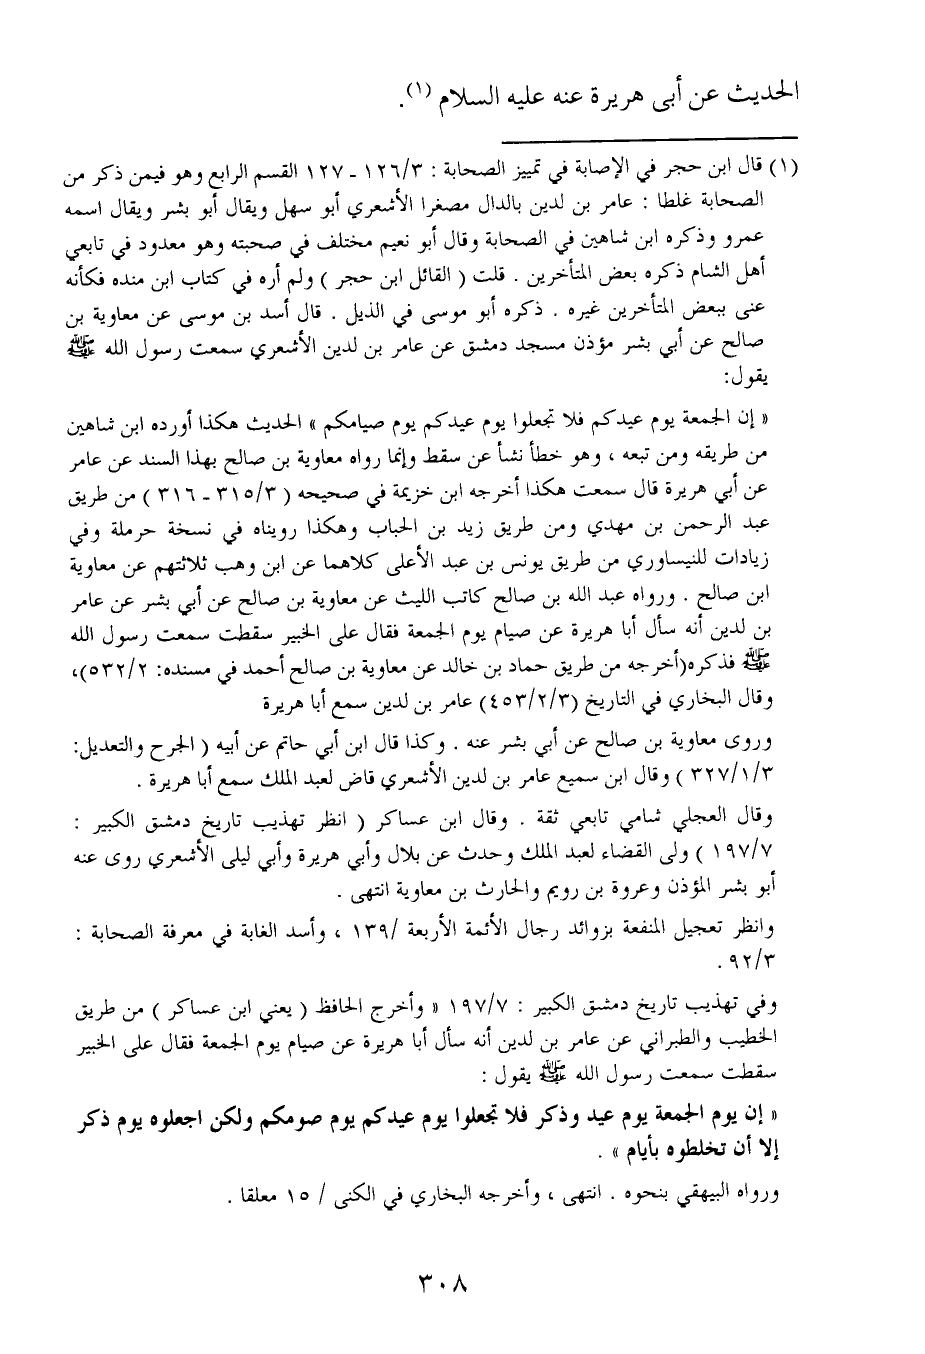 الحديث عن أبى هريرة عنه عليه السلام (١).
(١) قال ابن حجر في الإصابة في تمييز الصحابة : ١٢٦/٣ ـ ١٢٧ القسم الرابع وهو فيمن ذكر من
الصحابة غلطا : عامر بن لدين بالدال مصغرا الأشعري أبو سهل ويقال أبو بشر ويقال اسمه
عمرو وذكره ابن شاهين في الصحابة وقال أبو نعيم مختلف في صحبته وهو معدود في تابعي
أهل الشام ذكره بعض المتأخرين . قلت ( القائل ابن حجر ) ولم أره في كتاب ابن منده فكأنه
عنى ببعض المتأخرين غيره . ذكره أبو موسى في الذيل . قال أسد بن موسى عن معاوية بن
صالح عن أبي بشر مؤذن مسجد دمشق عن عامر بن لدين الأشعري سمعت رسول الله ﷺ
يقول:
« إن الجمعة يوم عيدكم فلا تجعلوا يوم عيدكم يوم صيامكم » الحديث هكذا أورده ابن شاهين
من طريقه ومن تبعه ، وهو خطأ نشأ عن سقط وإنما رواه معاوية بن صالح بهذا السند عن عامر
عن أبي هريرة قال سمعت هكذا أخرجه ابن خزيمة في صحيحه ( ٣١٥/٣ ـ ٣١٦ ) من طريق
عبد الرحمن بن مهدي ومن طريق زيد بن الحباب وهكذا رويناه في نسخة حرملة وفي
زيادات للنيساوري من طريق يونس بن عبد الأعلى كلاهما عن ابن وهب ثلاثتهم عن معاوية
ابن صالح . ورواه عبد الله بن صالح كاتب الليث عن معاوية بن صالح عن أبي بشر عن عامر
بن لدين أنه سأل أبا هريرة عن صيام يوم الجمعة فقال على الخبير سقطت سمعت رسول الله
ﷺ فذكره(أخرجه من طريق حماد بن خالد عن معاوية بن صالح أحمد في مسنده: ٥٣٢/٢)،
وقال البخاري في التاريخ (٤٥٣/٢/٣) عامر بن لدين سمع أبا هريرة
وروى معاوية بن صالح عن أبي بشر عنه . وكذا قال ابن أبي حاتم عن أبيه ( الجرح والتعديل:
٣٢٧/١/٣ ) وقال ابن سميع عامر بن لدين الأشعري قاض لعبد الملك سمع أبا هريرة .
وقال العجلي شامي تابعي ثقة . وقال ابن عساكر ( انظر تهذيب تاريخ دمشق الكبير :
١٩٧/٧ ) ولى القضاء لعبد الملك وحدث عن بلال وأبي هريرة وأبي ليلى الأشعري روى عنه
أبو بشر المؤذن وعروة بن رويم والحارث بن معاوية انتهى .
وانظر تعجيل المنفعة بزوائد رجال الأئمة الأربعة /١٣٩ ، وأسد الغابة في معرفة الصحابة :
٩٢/٣ .
وفي تهذيب تاريخ دمشق الكبير : ١٩٧/٧ « وأخرج الحافظ ( يعني ابن عساكر ) من طريق
الخطيب والطبراني عن عامر بن لدين أنه سأل أبا هريرة عن صيام يوم الجمعة فقال على الخبير
سقطت سمعت رسول الله ﷺ يقول :
« إن يوم الجمعة يوم عيد وذكر فلا تجعلوا يوم عيدكم يوم صومكم ولكن اجعلوه يوم ذكر
إلا أن تخلطوه بأيام » .
ورواه البيهقي بنحوه . انتهى ، وأخرجه البخاري في الكنى / ١٥ معلقا .
٣٠٨